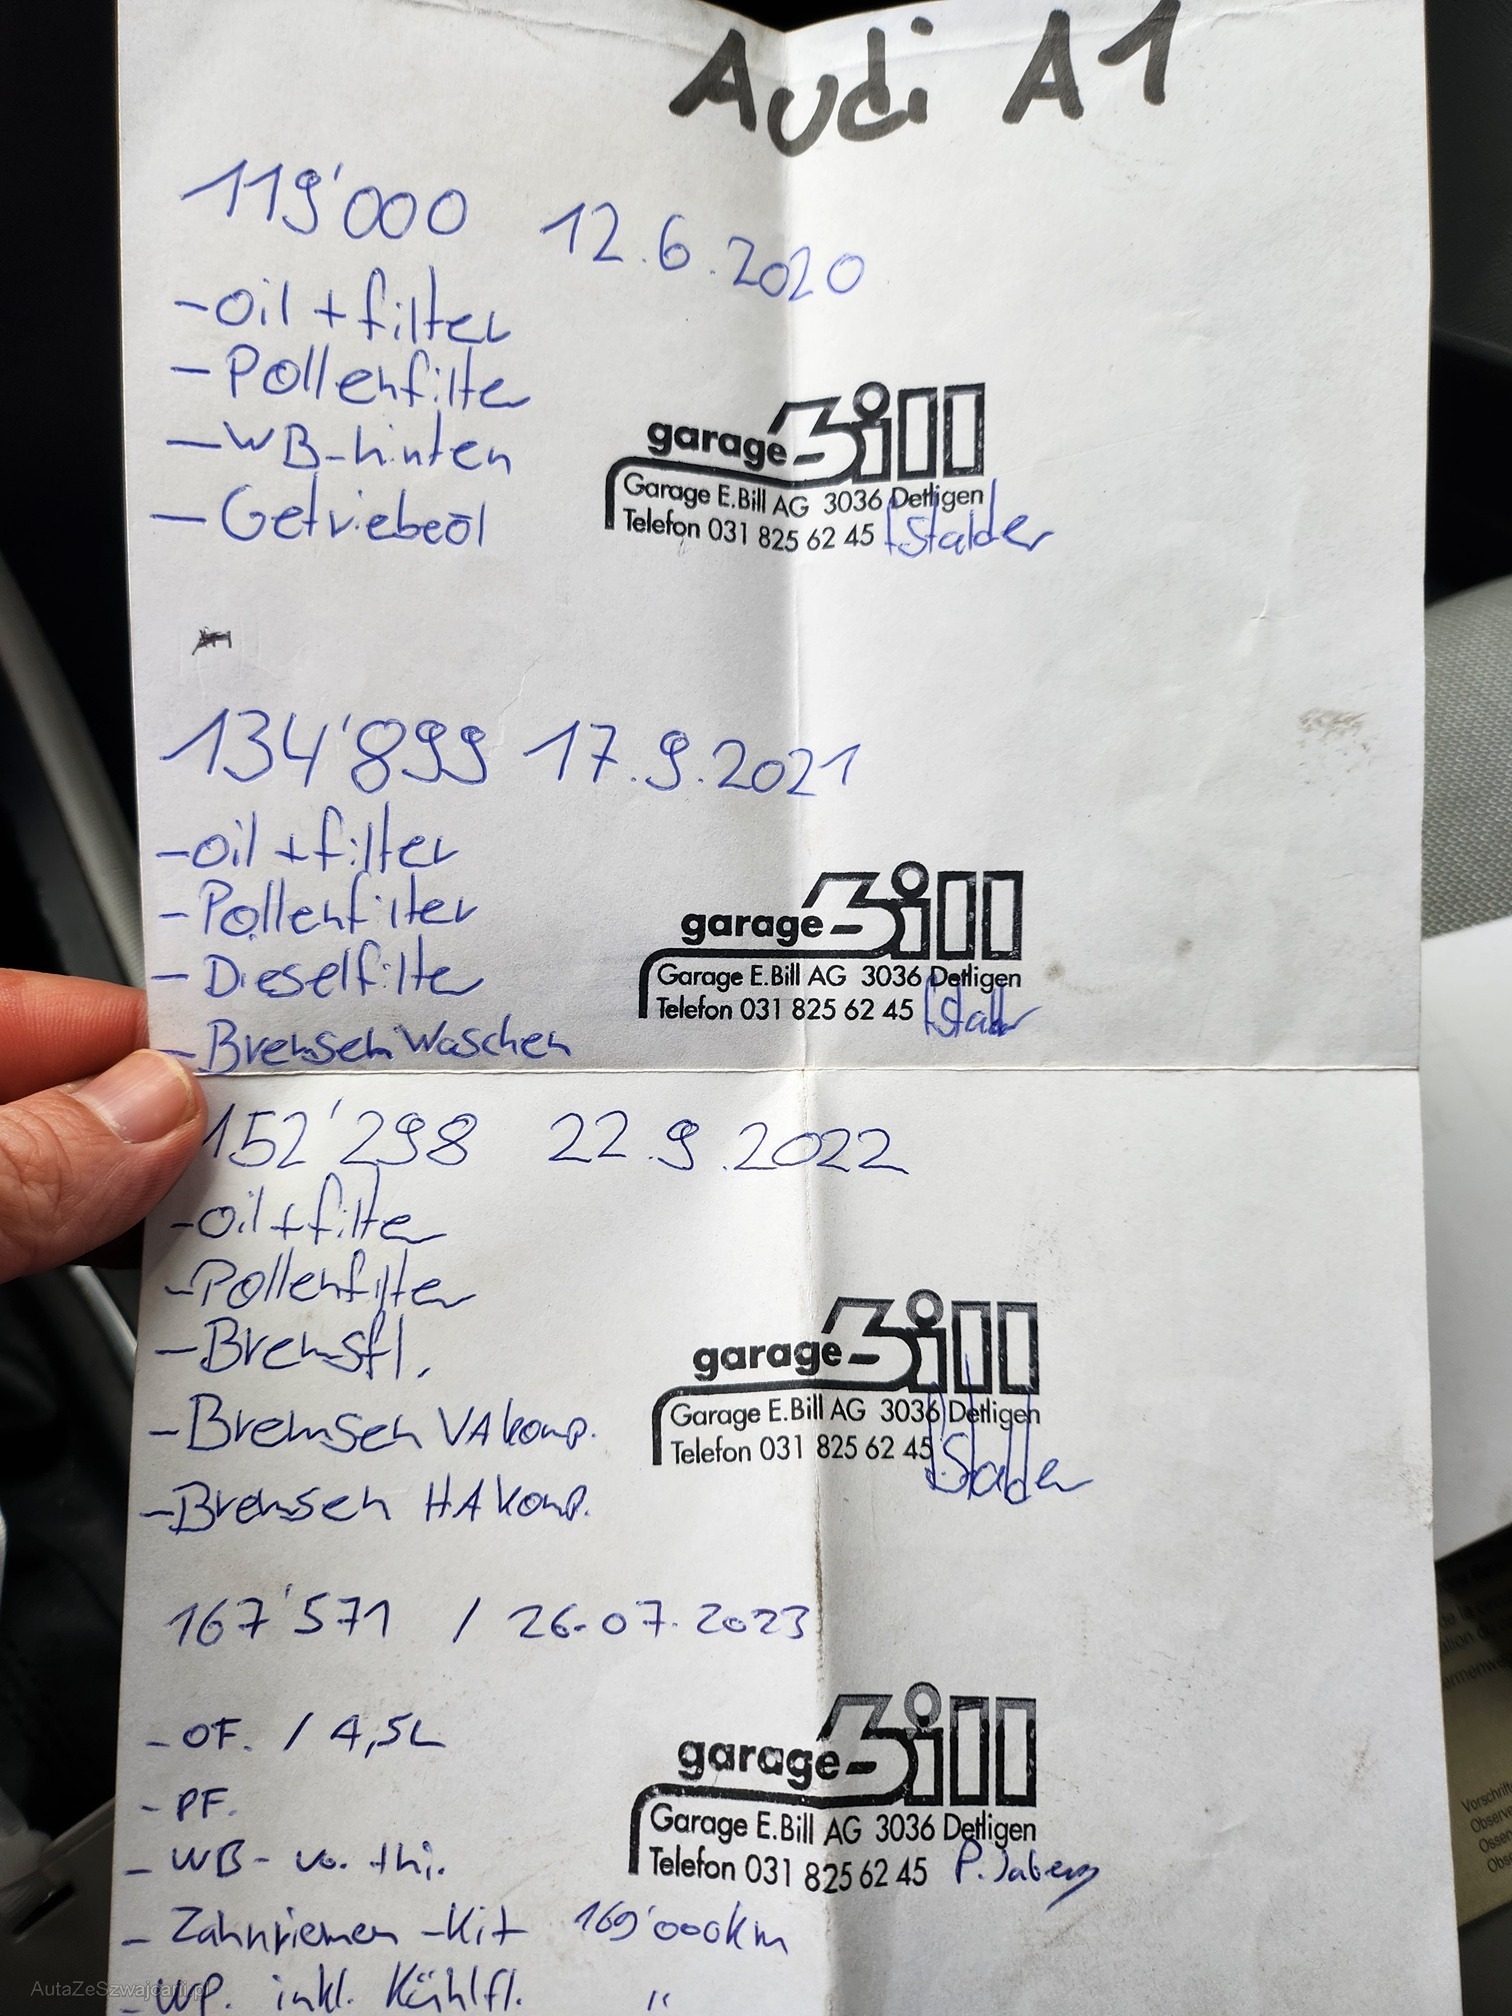 Audi A1
119'000 12.6.2020
- Oil + filter
- Pollenfilter
- WB-hinten
- Getriebeöl
garage Bill
Garage E.Bill AG 3036 Detligen
Telefon 031 825 62 45 Stalder
134'899 17.9.2021
- Oil + filter
- Pollenfilter
- Dieselfilter
- Bremsen Waschen
garage Bill
Garage E.Bill AG 3036 Detligen
Telefon 031 825 62 45 Stalder
152'298 22.9.2022
- Oil + filter
- Pollenfilter
- Bremsfl.
- Bremsen VA komp.
- Bremsen HA komp.
garage Bill
Garage E.Bill AG 3036 Detligen
Telefon 031 825 62 45 Stalder
167'571 / 26.07.2023
- OF. / 4,5L
- PF.
- WB - vo. + hi.
- Zahnriemen-Kit 169'000km
- WP. inkl. Kühlfl. "
garage Bill
Garage E.Bill AG 3036 Detligen
Telefon 031 825 62 45 P.
AutaZeSzwajcarii.pl
Vorschrift